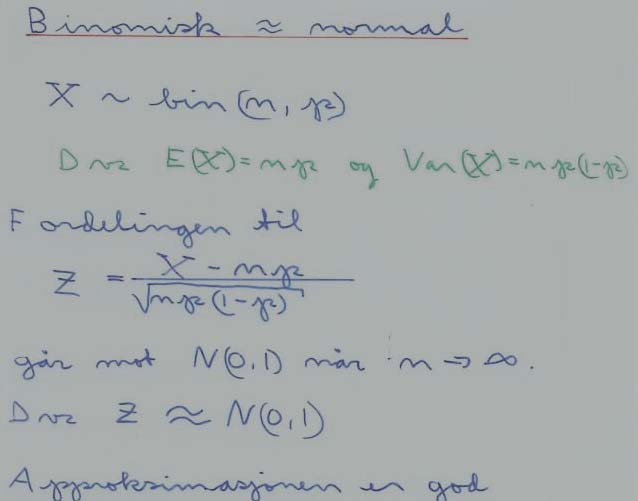 Binomisk ≈ normal
X ~ bin(n, p)
Dvs E(X) = np og Var(X) = np(1-p)
Fordelingen til
Z = \frac{X - np}{\sqrt{np(1-p)}}
går mot N(0,1) når n → ∞.
Dvs Z ≈ N(0,1)
Approksimasjonen er god